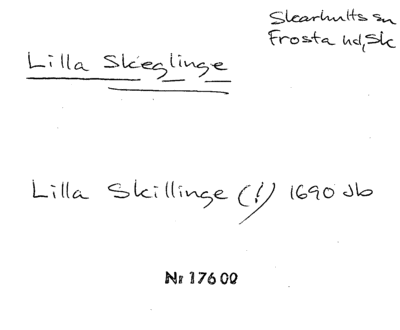 Skarhults sn
Frosta hd, Sk
Lilla Skeglinge
Lilla Skillinge (!) 1690 Jb
Nr 17600